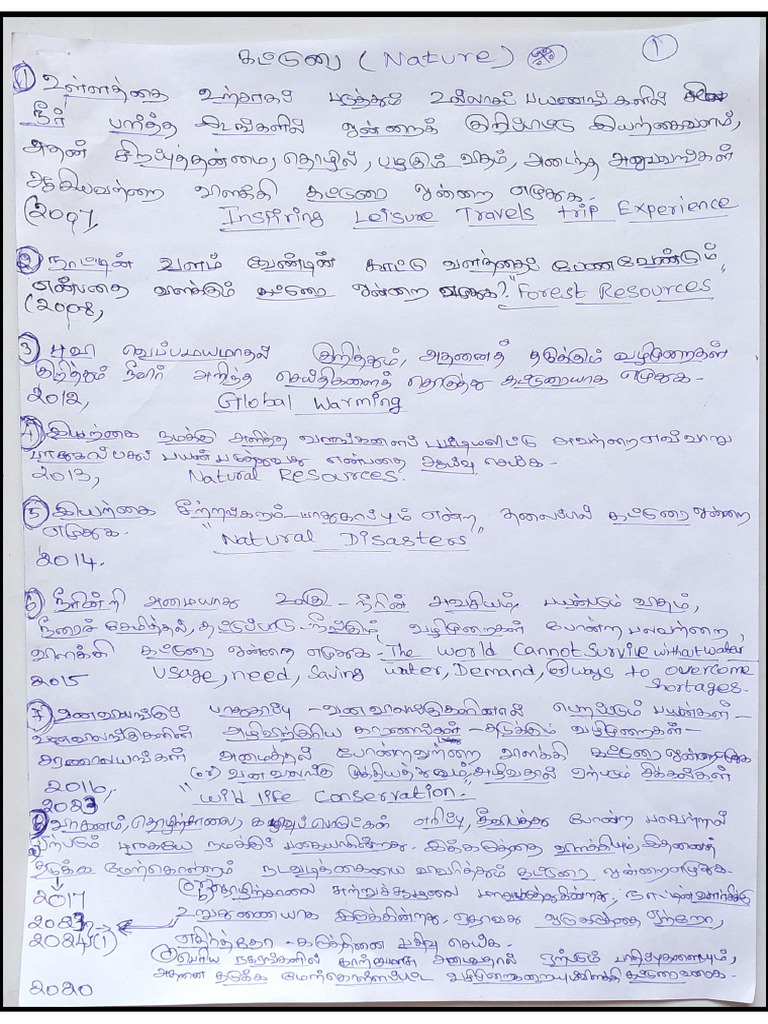 கட்டுரை (Nature) 1
① உள்ளத்தை உற்சாகப் படுத்தும் உல்லாசப் பயணங்களில்
நீர் பார்த்த இடங்களில் ஒன்றைக் குறிப்பிட்டு இயற்கைவளம்,
அதன் சிறப்புத்தன்மை, தொழில், பழகும் விதம், அடைந்த அனுபவங்கள்
ஆகியவற்றை விளக்கி கட்டுரை ஒன்றை எழுதுக.
(2007, Inspiring Leisure Travels trip Experience
② நாட்டின் வளம் வேண்டின் காட்டு வளத்தைப் பேணவேண்டும்
என்பதை விளக்கும் கட்டுரை ஒன்றை எழுதுக? "Forest Resources"
(2008,
③ புவி வெப்பமயமாதல் குறித்தும், அதனைத் தடுக்கும் வழிமுறைகள்
குறித்தும் நீவிர் அறிந்த செய்திகளைத் தொகுத்து கட்டுரையாக எழுதுக-
2012, Global Warming
④ இயற்கை நமக்கு அளித்த வளங்களைப் பட்டியலிட்டு அவற்றை எவ்வாறு
பயன் படுத்துவது என்பதை ஆய்வு செய்க -
2013, Natural Resources.
⑤ இயற்கை சீற்றங்களும்-பாதுகாப்பும் என்ற தலைப்பில் கட்டுரை ஒன்றை
எழுதுக. "Natural Disasters"
2014.
⑥ நீரின்றி அமையாது உலகு - நீரின் அவசியம், பயன்படும் விதம்,
நீரைச் சேமித்தல், தட்டுப்பாடு-நீக்கும் வழிமுறைகள் போன்ற பலவற்றை
விளக்கி கட்டுரை ஒன்றை எழுதுக - The world Cannot Survive without water
2015 usage, need, Saving water, Demand, ways to overcome
Shortages.
⑦ வனவிலங்குப் பாதுகாப்பு - வனவிலங்குகளினால் பெறப்படும் பயன்கள் -
வனவிலங்குகளின் அழிவிற்குரிய காரணங்கள் - தடுக்கும் வழிமுறைகள் -
சரணாலயங்கள் அமைத்தல் போன்றவற்றை விளக்கி கட்டுரை ஒன்றை எழுதுக
2016, (or) வன விலங்கு முக்கியத்துவம், அழிவதால் ஏற்படும் சிக்கல்கள்
2023 "Wild life Conservation."
⑧ வாகனம், தொழிற்சாலை, கழிவுப் பொருட்கள் எரிப்பு, தீவிபத்து போன்ற பலவற்றால்
ஏற்படும் புகையே நமக்குப் பகையாகின்றது. இக்கருத்தை விளக்கியும், இதனைத்
தடுக்க மேற்கொள்ளும் நடவடிக்கையை விவரித்தும் கட்டுரை ஒன்றை எழுதுக-
2017 (or) தொழிற்சாலை சுற்றுச்சூழலை மாசுபடுத்துகின்றது, நாட்டின் வளர்ச்சிக்கு
2023 உறுதுணையாக இருக்கின்றது. ஏதாவது ஒரு கருத்தை ஏற்றோ,
2024 (1) எதிர்த்தோ - கருத்தினை பதிவு செய்க -
பெரிய நகரங்களில் காற்று மாசு அடைவதால் ஏற்படும் பாதிப்புகளையும்,
2020 அதனை தடுக்க மேற்கொள்ளப்பட்ட வழிமுறைகளையும் விளக்கி கட்டுரை வரைக -